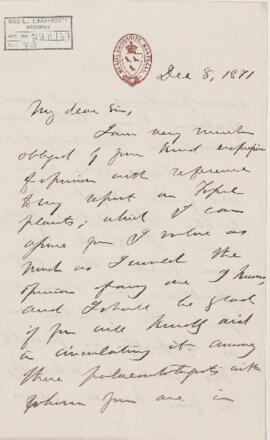 McGILL UNIVERSITY
ARCHIVES
ACC. NO.
McGILL UNIVERSITY, MONTREAL
Dec 8, 1871
My dear Sir,
I am very much
obliged by your kind expression
of opinion with reference
to my report on Fossil
plants; which I can
assure you I value as
much as I would the
opinion of any one I know,
and I should be glad
if you will kindly aid
in circulating it among
those palaeontologists with
whom you are in